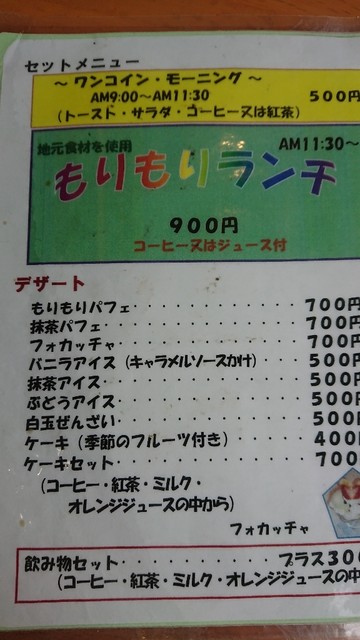 セットメニュー
～ ワンコイン・モーニング ～
AM9:00～AM11:30 500円
(トースト・サラダ・コーヒー又は紅茶)
地元食材を使用 AM11:30～
もりもりランチ
900円
コーヒー又はジュース付
デザート
もりもりパフェ・・・・・・・・・・・・700円
抹茶パフェ・・・・・・・・・・・・・・700円
フォカッチャ・・・・・・・・・・・・・700円
バニラアイス (キャラメルソースかけ)・・・500円
抹茶アイス・・・・・・・・・・・・・・500円
ぶどうアイス・・・・・・・・・・・・・500円
白玉ぜんざい・・・・・・・・・・・・・500円
ケーキ (季節のフルーツ付き)・・・・・・400円
ケーキセット・・・・・・・・・・・・・700
(コーヒー・紅茶・ミルク・
オレンジジュースの中から)
フォカッチャ
飲み物セット・・・・・・・・・・・プラス300
(コーヒー・紅茶・ミルク・オレンジジュースの中